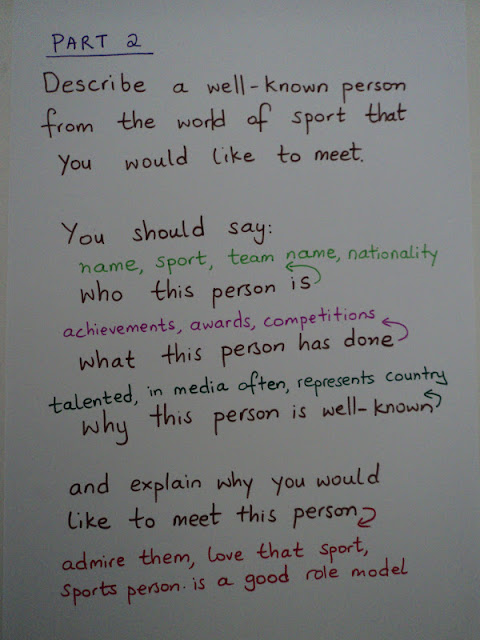 PART 2
Describe a well-known person
from the world of sport that
you would like to meet.
You should say:
name, sport, team name, nationality
who this person is
achievements, awards, competitions
what this person has done
talented, in media often, represents country
why this person is well-known
and explain why you would
like to meet this person
admire them, love that sport,
sports person is a good role model